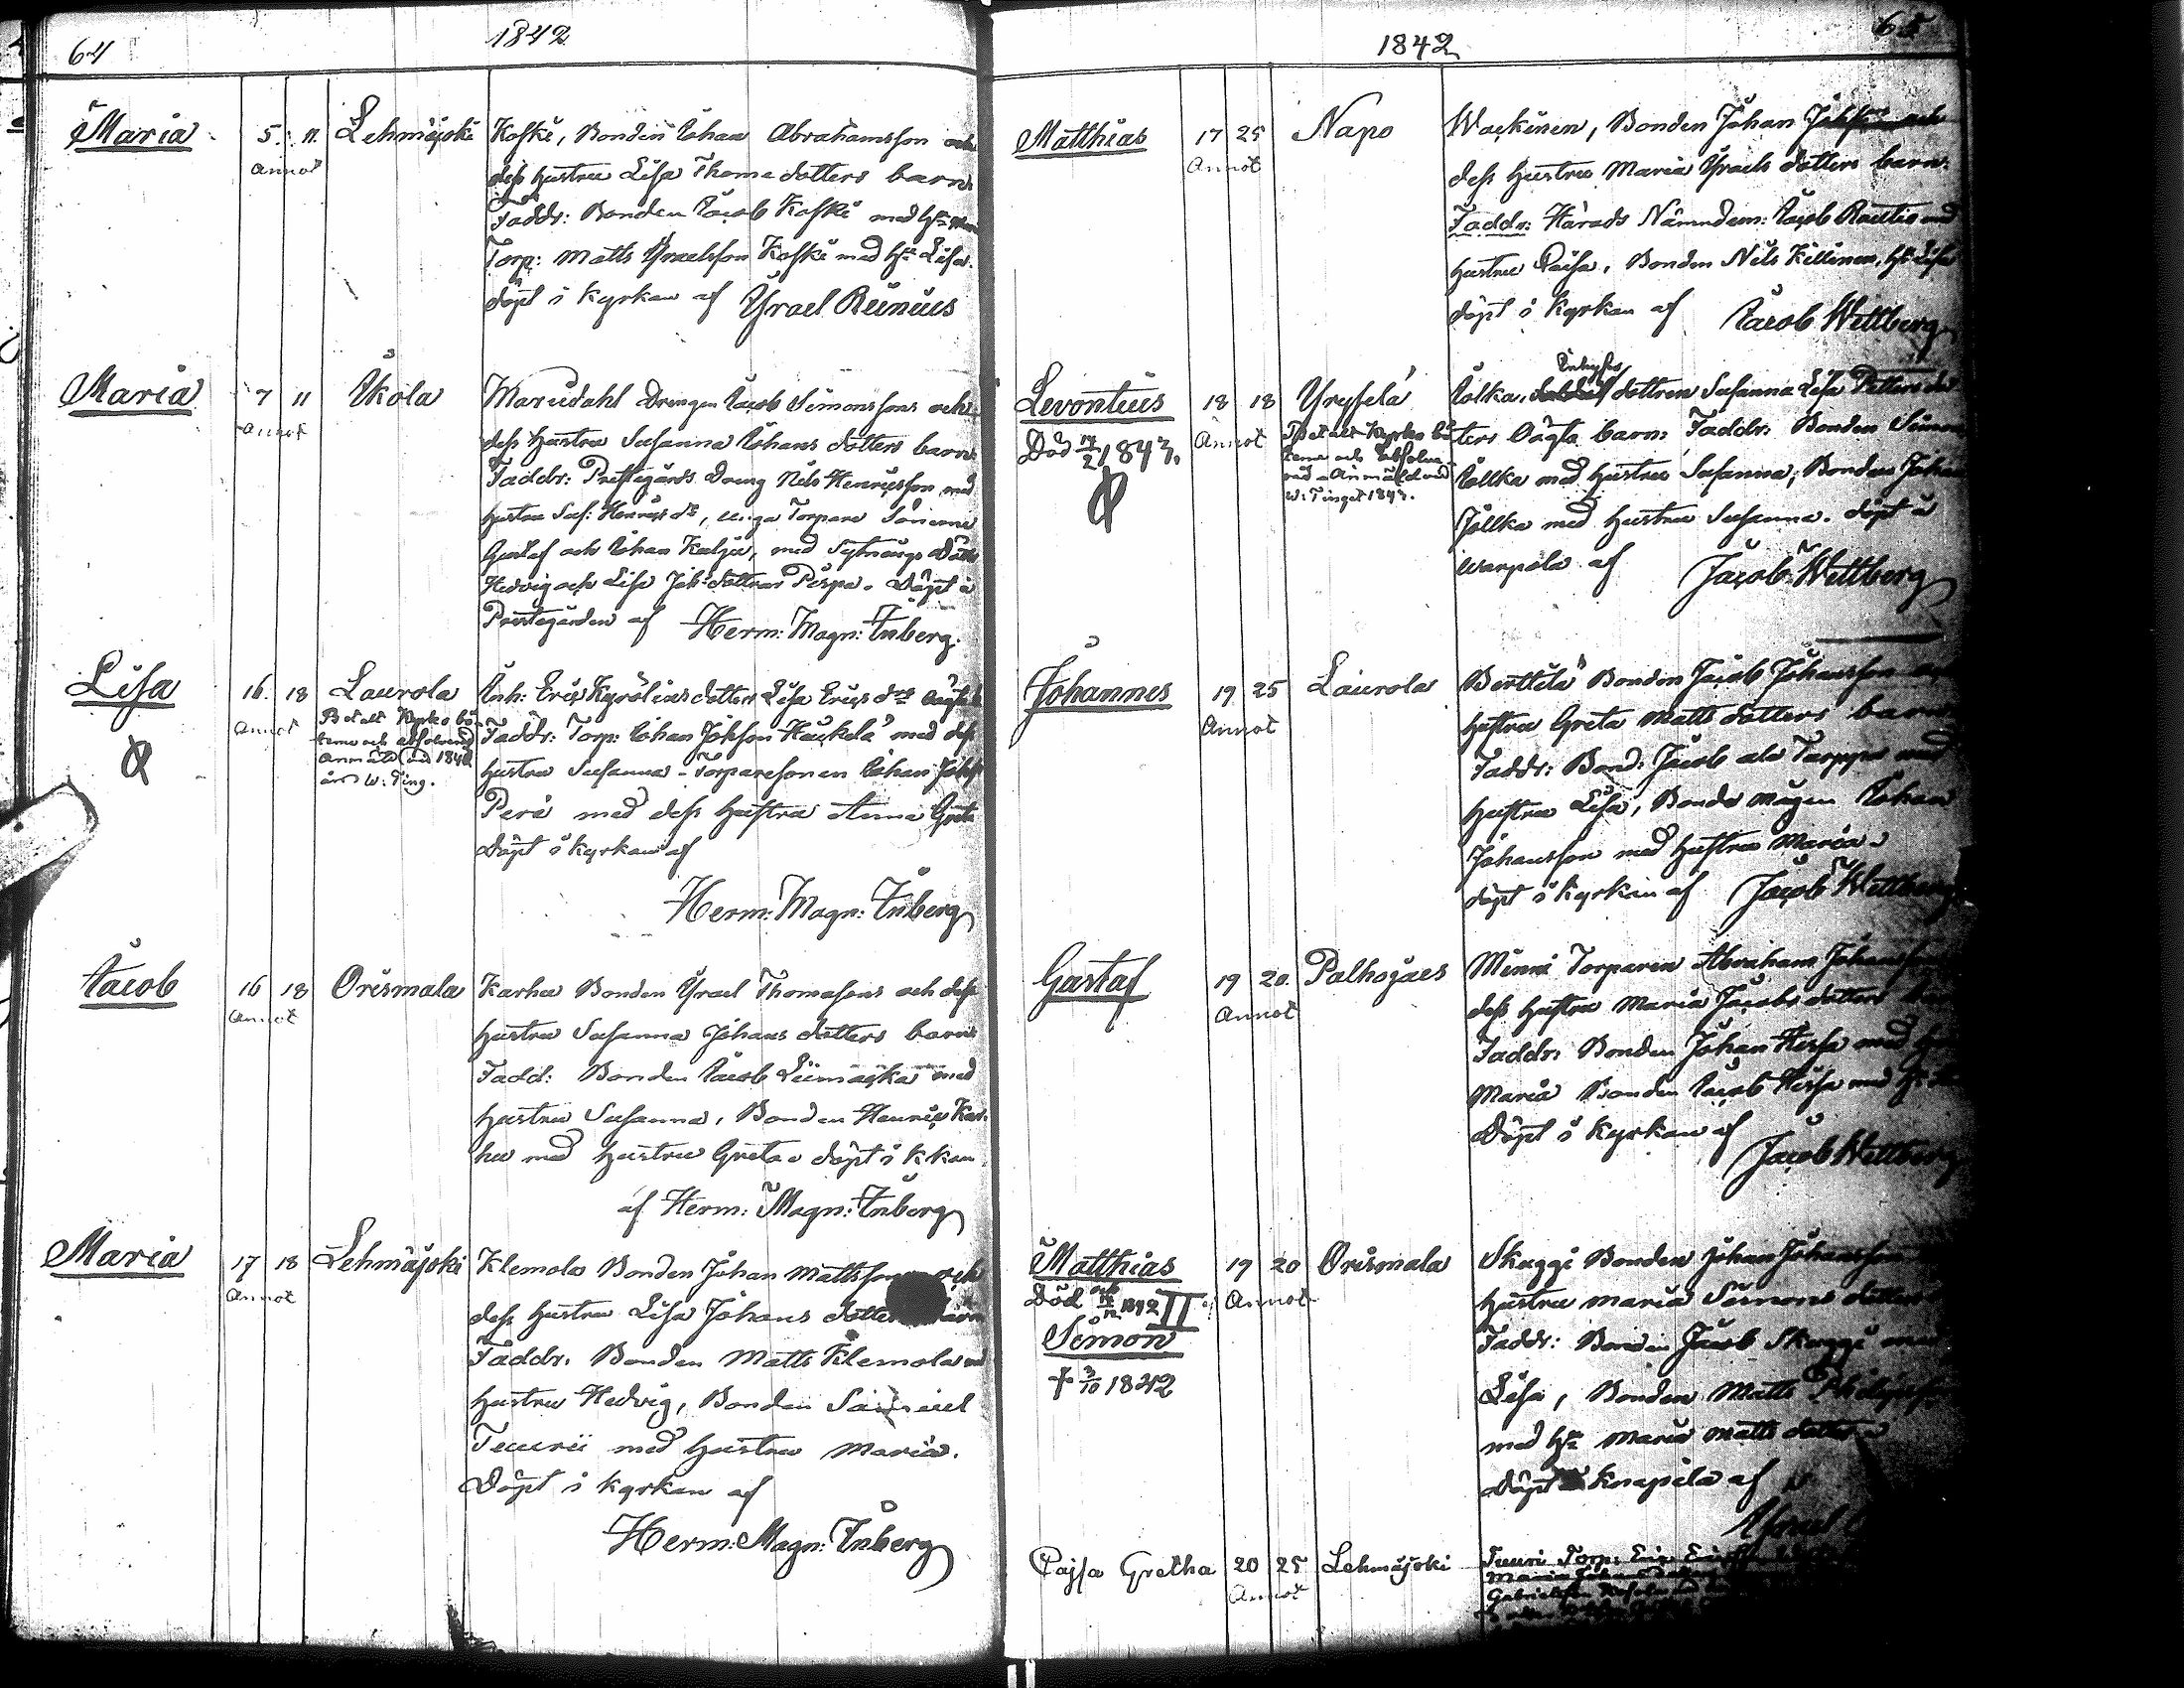 64
1842
Maria 5. 11. Lehmäjoki Koski, Bonden Johan Abrahamsson och
Annot
dess hustru Lisa Thome dotters barn.
Faddr: Bonden Jacob Koski med hst
Torp: Matts Yraelsson Koski med hst Lisa.
döpt i Kyrkan af Yrael Reinius
Maria 7 11 Ikola Marudahl Drengen Jacob Simonssons och
Annot
dess Hustru Susanna Johans dotters barn
Faddr: Prestegårds Dreng Nils Henricsson med
hustru Sus: Henrics dr, unga Torpare Sönerne
Gustaf och Johan Kulju, med Sytnings Dött
Hedvig och Lisa Joh: döttrar Perpa. Döpt i
Prestegården af Herm: Magn: Inberg.
Lisa 16. 18 Laurola Inh: Eric Kyröläs dotter Lisa Erics drs oägta b
Annot
Betalt Kyrko bö-
terne och absolverad
Anmäld vid 1842
års W: Ting.
Faddr: Torp: Johan Johsson Huckola med dess
hustru Susanna - Torparesonen Johan Johss
Perä med dess hustru Anna Greta
Döpt i kyrkan af
Herm: Magn: Inberg
Jacob 16 18 Orismala Karhu Bonden Yrael Thomasons och dess
Annot
hustru Susanna Johans dotters barn
Fadd: Bonden Jacob Liimacka med
hustru Susanna, Bonden Henric Kar-
hu med hustru Greta. döpt i k:kan
af Herm: Magn: Inberg
Maria 17 18 Lehmäjoki Klemola Bonden Johan Mattsson och
Annot
dess hustru Lisa Johans dotters barn
Faddr. Bonden Matts Klemola med
hustru Hedvig, Bonden Samuel
Teuri med hustru Maria.
Döpt i kyrkan af
Herm: Magn: Inberg
1842
65
Matthias 17 25 Napo Wackinen, Bonden Johan Johsson och
Annot
dess hustru Maria Yraels dotters barn.
Faddr: Härads Nämndem: Jacob Rautio med
hustru Caisa, Bonden Nils Killinen, hst Lisa
döpt i Kyrkan af Jacob Wettberg
Levontius 18 18 Yryselä Jolka, Inhyses dottren Susanna Lisa Petters dot
Död 17/2 1843. Annot
Betalt Kyrko bö-
terne och absolve-
rad - Anmäld vid
W: Tinget 1843.
ters Oägta barn: Faddr: Bonden Simon
Jollka med hustru Susanna, Bonden Johan
Jollka med hustru Susanna. döpt i
Warpola af Jacob Wettberg
Johannes 19 25 Laurola Berttilä Bonden Jacob Johansson och
Annot
hustru Greta Matts dotters barn
Faddr: Bond: Jacob ala Torppa med
hustru Lisa, Bonde mågen Johan
Johansson med hustru Maria.
döpt i kyrkan af Jacob Wettberg
Gustaf 19 20. Palhojaes Minni Torparen Abraham Johansson
Annot
dess hustru Maria Jacobs dotters barn
Faddr: Bonden Johan Hissa med
Maria Bonden Jacob Hissa med hst
Döpt i Kyrkan af
Jacob Wettberg
Matthias 19 20 Orismala Skaggi Bonden Johan Johansson
Död och 14/12 1842 II Annot
hustru Maria Simons dotters
Simon
Faddr: Bonden Jacob Skaggi med
† 3/10 1842
Lisa, Bonden Matts
med hst Maria Matts dotter
Döpt Knapila af
Yrael
Cajsa Gretha 20 25 Lehmäjoki Teuri Torp: Eric
Annot
Maria Johans